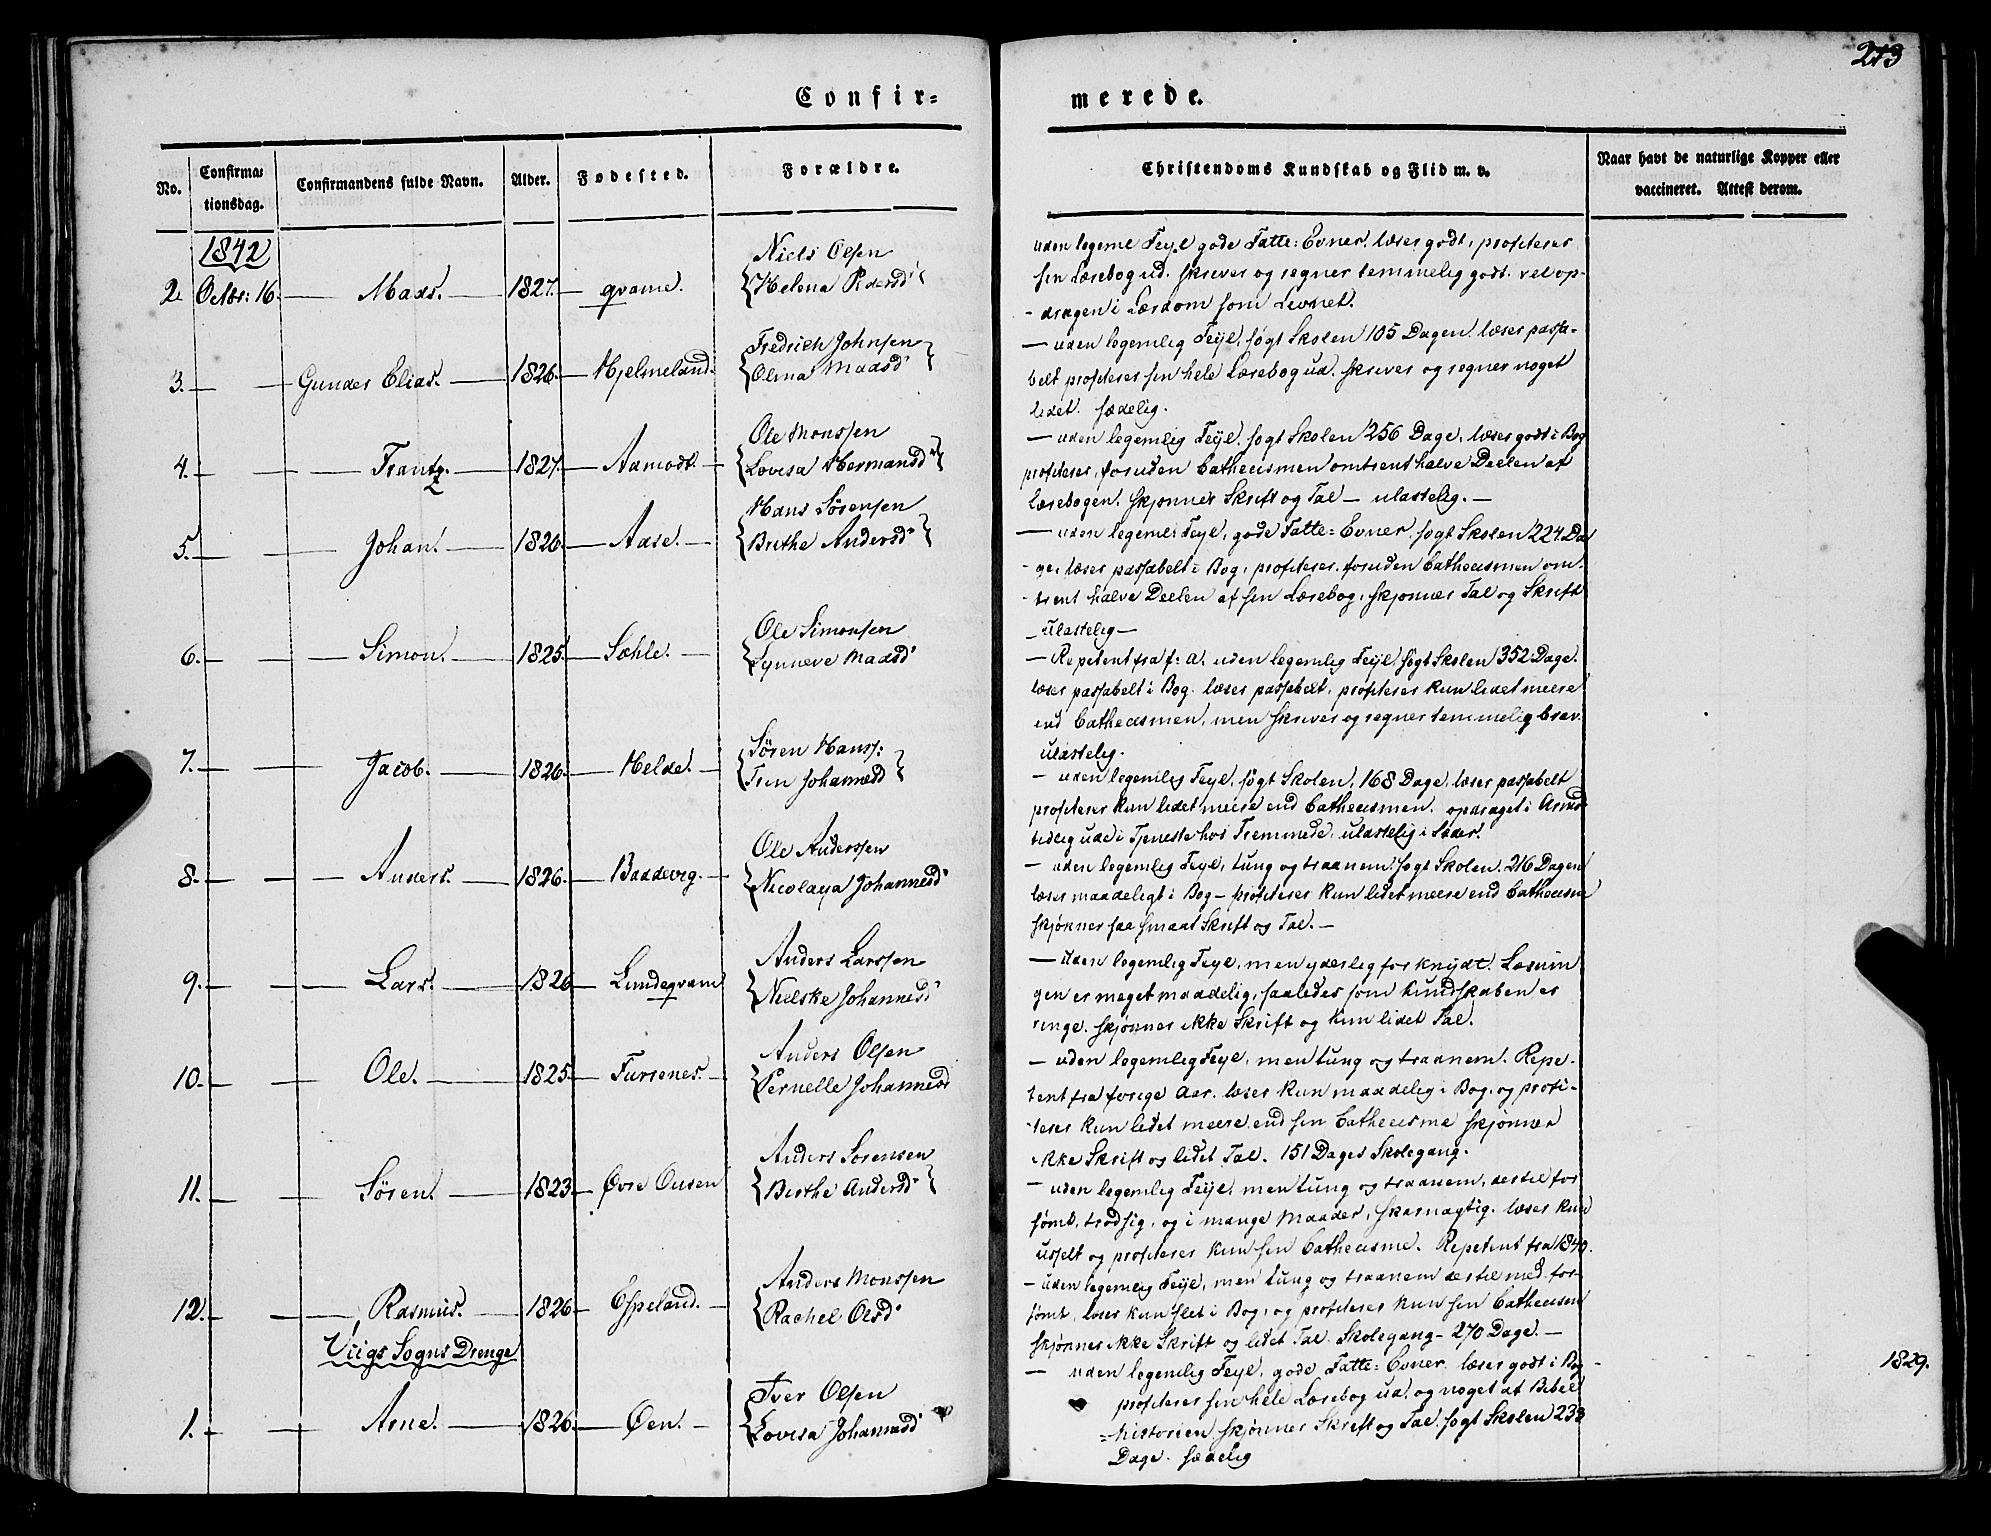 213
Confir=
merede.
No.
Confirma=
tionsdag.
Confirmandens fulde Navn.
Alder.
Fødested.
Forældre.
Christendoms Kundskab og Flid m. v.
Naar havt de naturlige Kopper eller
vaccineret. Attest derom.
1842
2 Octbr: 16. — Mads. — 1827. — qvame.
Niels Olsen
Helena Pedersd'
uden legeml Feyl gode Fatte=Evner. læser godt, profiterer
sin Læsebog ud. skriver og regner temmelig godt. vel op-
-dragen i Lærdom som Levnet.
3. — — Gunder Elias. — 1826. — Hjelmeland.
Fredrich Johnsen
Olina Madsd'
— uden legemlig Feyl, søgt Skolen 105 Dagen. læser passa-
belt profiterer sin hele Læsebog ud. skriver og regner noget
lidet. sædelig.
4. — — Frantz. — 1827. — Aamodt. —
Ole Monssen
Lovisa Hermansd'
— uden legemlig Feyl. søgt Skolen 256 Dage, læser godt i Bog
profiterer, foruden Cathecismen omtrent halve Deelen af
læsebogen. skjønner Skrift og Tal — ulastelig. —
5. — — Johan. — 1826. — Aase. —
Hans Sørensen
Brithe Andersd'
— uden legeml: Feyl, gode Fatte=Evner. søgt Skolen 224. Da
-ge, læser passabelt i Bog, profiterer, foruden Cathecismen om-
-trent halve Deelen af sin Læsebog, skjønner Tal og Skrift
— Ulastelig —
6. — — Simon. — 1825. — Sæhle. —
Ole Simonsen
Synneve Madsd'
— Repetent fra f: A. uden legemlig Feyl. søgt Skolen 352 Dage.
læser passabelt i Bog. læser passabelt, profiterer kun lidet meere
end Cathecismen, men skriver og regner temmelig brav.
ulastelig.
7. — — Jacob. — 1826. — Helde. —
Søren Hanss:
Johannesd
— uden legemlig Feyl, søgt Skolen, 168 Dage, læser passabelt
profiterer kun lidet meere end Cathecismen. opdraget i Armod
tidlig ude i Tjeneste hos Fremmede, ulastelig i Sæder.
8. — — Anders. — 1826. — Baddevig. —
Ole Anderssen
Nicolaya Johannesd'
— uden legemlig Feyl, tung og traanem søgt Skolen. 216 Dagen
læser maadeligt i Bog — profiterer kun lidet meere end Cathecism
skjønner saa smaat Skrift og Tal. —
9. — — Lars. — 1826 — Lundeqvam
Anders Larssen
Nielske Johannesd'
— uden legemlig Feyl, men yderlig forknydt. Læsnin
gen er meget maadelig, saaledes som kundskaben er
ringe. skjønner ikke Skrift og kun lidet Tal.
10. — — Ole. — 1825. — Fursenes. —
Anders Olsen
Pernelle Johannesd
— uden legemlig Feyl, men tung og traanem. Repe-
tent fra forige Aar. læser kun maadelig i Bog. og profi-
-terer kun lidet meere end sin Cathecisme skjønner
ikke Skrift og lidet Tal. 151 Dages Skolegang.
11. — — Søren. — 1823. — Øvre Ousen
Anders Sørensen
Birthe Andersd'
— uden legemlig Feyl, men tung og traanem, dertil for
sømt, trodsig, og i mange Maader, skarnagtig. læser kun
usselt og profiterer kun sin Cathecisme. Repetent fra 1840.
12. — — Rasmus. — 1826 — Espeland. —
Anders Monssen
Rachel Olsd'
— uden legemlig Feyl, men tung og traanem dertil med for-
sømt, læser kun slet i Bog, og profiterer kun sin Cathecism
skjønner ikke Skrift og lidet Tal. Skolegang — 270 Dage. —
Viigs Sogns Drenge
1. — — Arne. — 1826. — Øen. —
Iver Olsen
Lovisa Johannesd'
— uden legemlig Feyl, gode Fatte=Evner. læser godt i Bog
profiterer sin hele Læsebog ud, og noget af Bibel
=historien. skjønner Skrift og Tal. søgt Skolen 238
Dage. sædelig
1829.